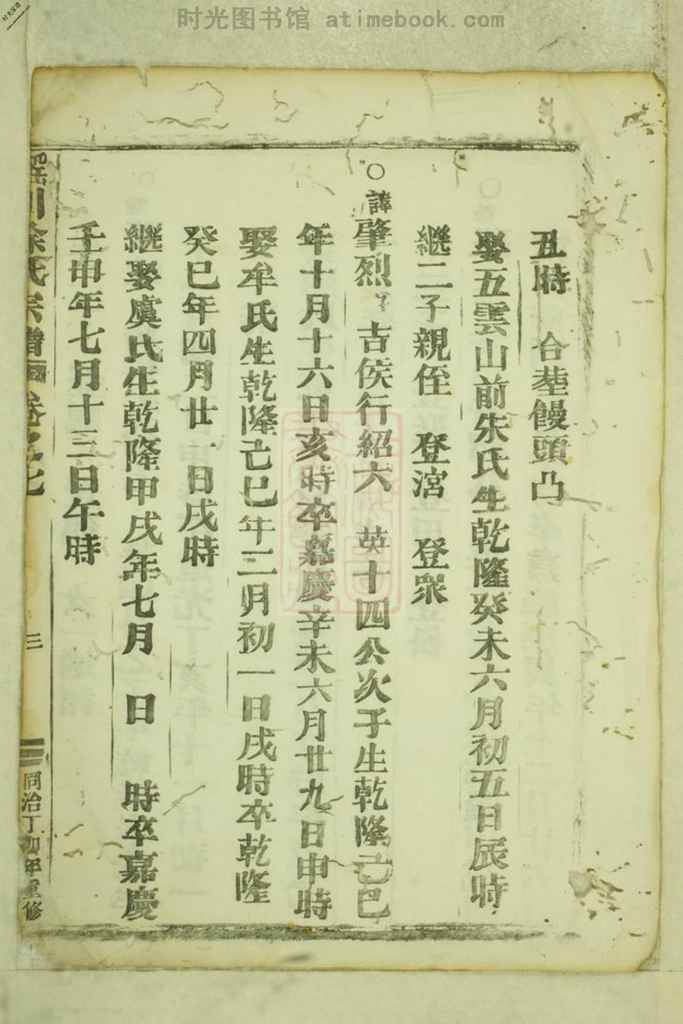 时光图书馆 atimebook.com
丑時 合塟饅頭凸
娶五雲山前朱氏生乾隆癸未六月初五日辰時
繼二子親侄 登宮 登衆
○諱肇烈 吉侯行紹六 英十四公次子生乾隆己巳
年十月十六日亥時卒嘉慶辛未六月廿九日申時
娶牟氏生乾隆己巳年二月初一日戌時卒乾隆
癸巳年四月廿 日戌時
繼娶虞氏生乾隆甲戌年七月 日 時卒嘉慶
壬申年七月十三日午時
川徐氏宗譜 卷之七
三
同治丁卯年重修